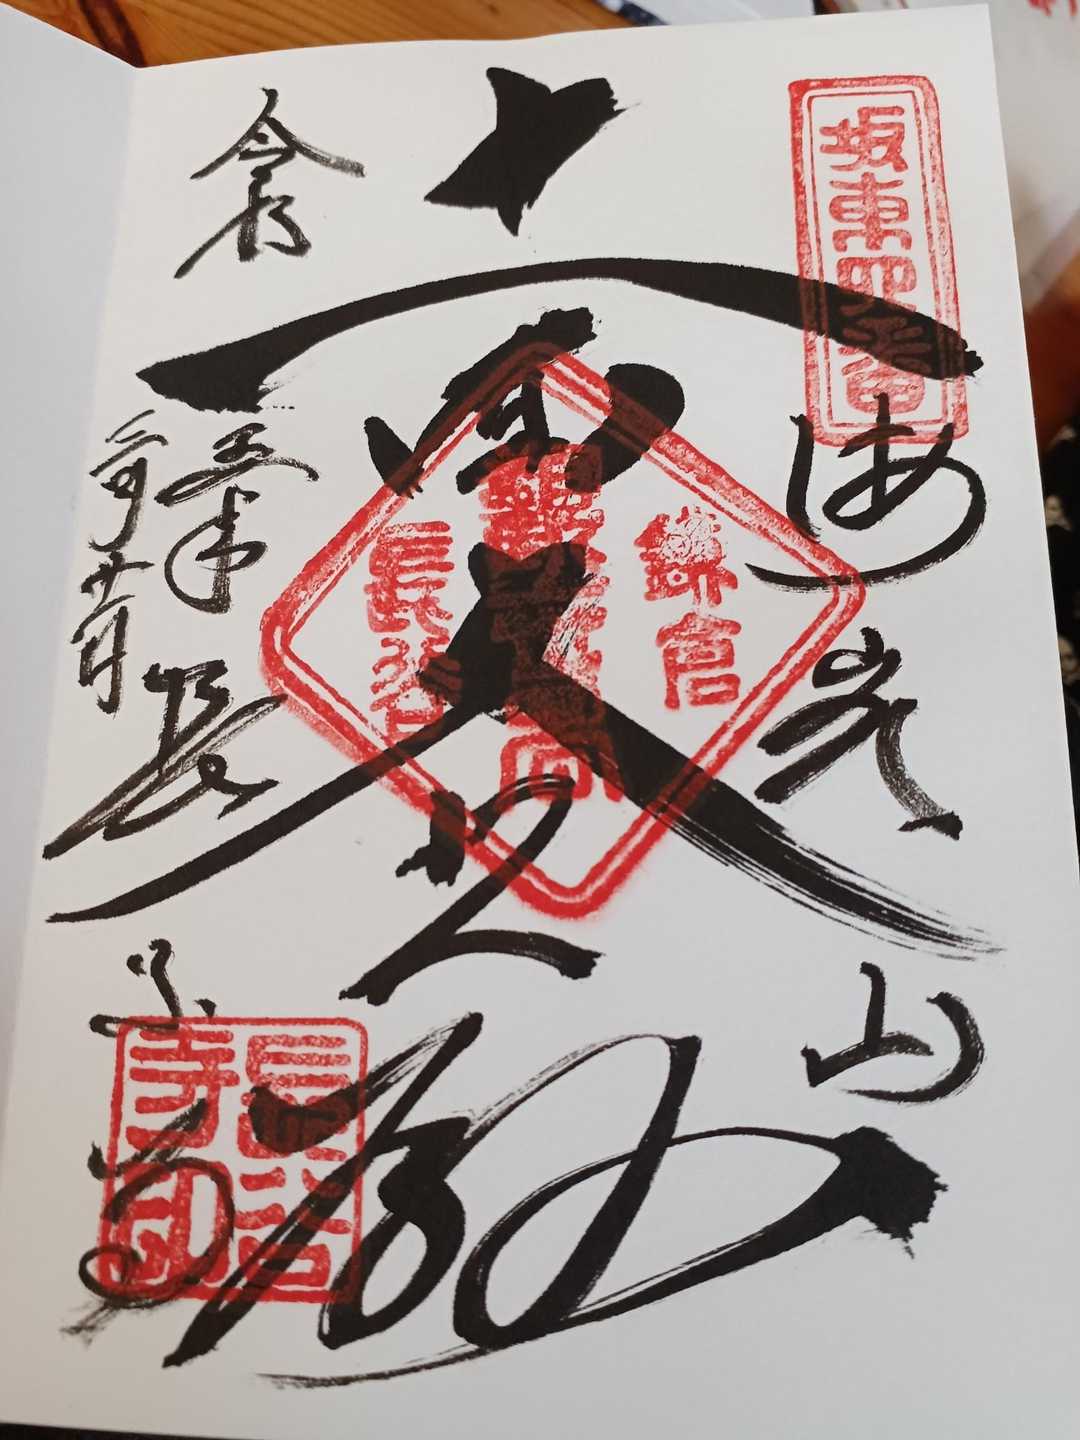 坂東四番
海光山
十一面大悲殿
鎌倉
長谷
令和五年
長谷寺
長谷寺印